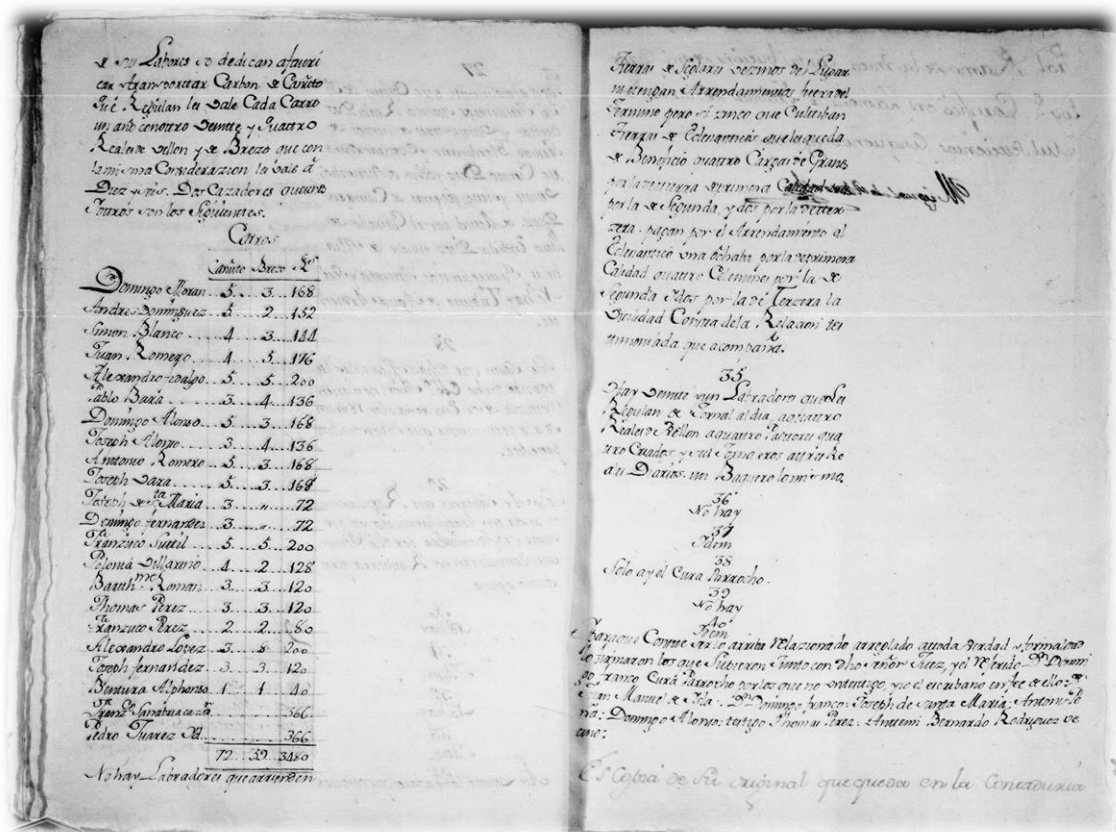 de sus Labores se dedican a fauri
car y transporttar Carbon de Cañuto
que Regulan les Vale Cada Carro
un año con ottro Veintte y quattro
Reales de Vellon y de Brezo que con
la misma Considerazion les Vale a
Diez y seis. Dos Cazadores
son los Siguientes.
Carros
Cañuto Brezo Rs
Domingo Moran 5. 3. 168
Andres Dominguez 5. 2. 152
Simon Blanco 4. 3. 144
Juan Romero 4. 5. 176
Alexandro hidalgo 5. 5. 200
Pablo Bara 3. 4. 136
Domingo Alonso 5. 3. 168
Joseph Alonso 3. 4. 136
Anttonio Romero 5. 3. 168
Joseph Vara 5. 3. 168
Joseph de Sta Maria 3. " 72
Domingo fernandez 3. " 72
Franzisco Suttil 5. 5. 200
Polonia Villarino 4. 2. 128
Barthme Roman 3. 3. 120
Thomas Perez 3. 3. 120
Franzisco Perez 2. 2. 80
Alexandro Lopez 3. 8. 200
Joseph fernandez 3. 3. 120
Bentura Alphonso 1. 1. 40
Franco Sanabria 366
Pedro Juarez 366
72. 59. 3480
No hay Labradores que arrienden
tierras de Seglares vezinos del Lugar
ni tengan Arrendamientos fuera del
Termino pero si zinco que Culttiban
tierras de Eclesiasticos que les queda
de Beneficio quattro Cargas de Granos
por la de tierra de primera Calidad
por la de Segunda, y dos por la de tter
zera. pagan por el Arrendamiento al
Eclesiastico una ochaba por la de primera
Calidad quattro Celemines por la de
Segunda y dos por la de Terzera la
Vecindad Consta de la Relacion tes
timoniada que acompaña.
35
Hay veintte y un Labradores que les
Regulan de Jornal al dia, a quattro
Reales de Vellon a quattro Pastores qua
ttro Criados y seis Jornaleros a ttres Re
ales Diarios. un Baquero lo mismo.
36
No hay
37
Idem
38
Solo ay el Cura Parrocho.
39
No hay
40
Idem
Y para que Conste ser lo arriba Relazionado arreglado a ttoda Verdad y
lo firmaron los que Supieron Juntto con dho Señor Juez, y el Referido Dn Domin
go franco Cura Parrocho por los que no un testigo, y yo el escribano en fee de ello:
Juan Manuel de Isla. Dn Domingo franco: Joseph de Santa Maria: Antonio
Domingo Alonso: testigo Thomas Perez. Antemi Bernardo Rodriguez
Es Copia de su original que queda en la Contaduria